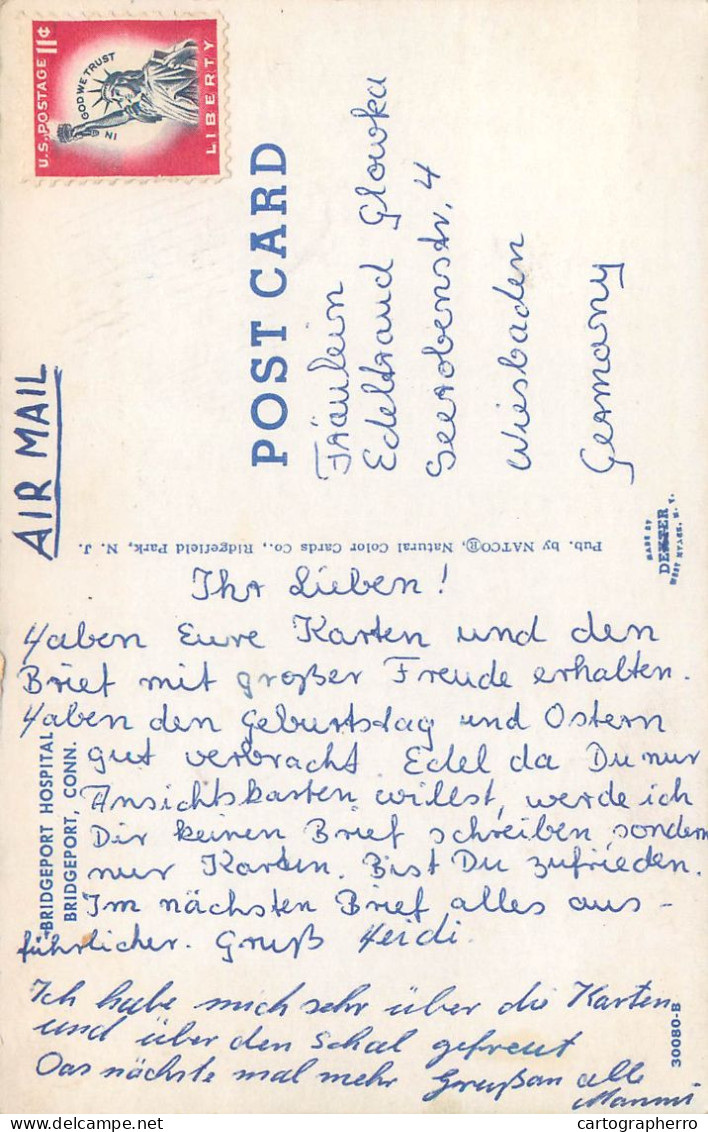 U.S. POSTAGE 11¢
IN GOD WE TRUST
LIBERTY
AIR MAIL
POST CARD
Fräulein
Edeltraud Glowka
Seerobenstr. 4
Wiesbaden
Germany
Pub. by NATCO®, Natural Color Cards Co., Ridgefield Park, N. J.
MADE BY
DEXTER
WEST NYACK, N. Y.
BRIDGEPORT HOSPITAL
BRIDGEPORT, CONN.
30080-B
Ihr Lieben!
Haben Eure Karten und den
Brief mit großer Freude erhalten.
Haben den Geburtstag und Ostern
gut verbracht. Edel da Du nur
Ansichtskarten willst, werde ich
Dir keinen Brief schreiben sondern
nur Karten. Bist Du zufrieden.
Im nächsten Brief alles aus-
führlicher. Gruß Heidi.
Ich habe mich sehr über die Karten
und über den Schal gefreut
Das nächste mal mehr Gruß an alle
Mammi
cartographerro